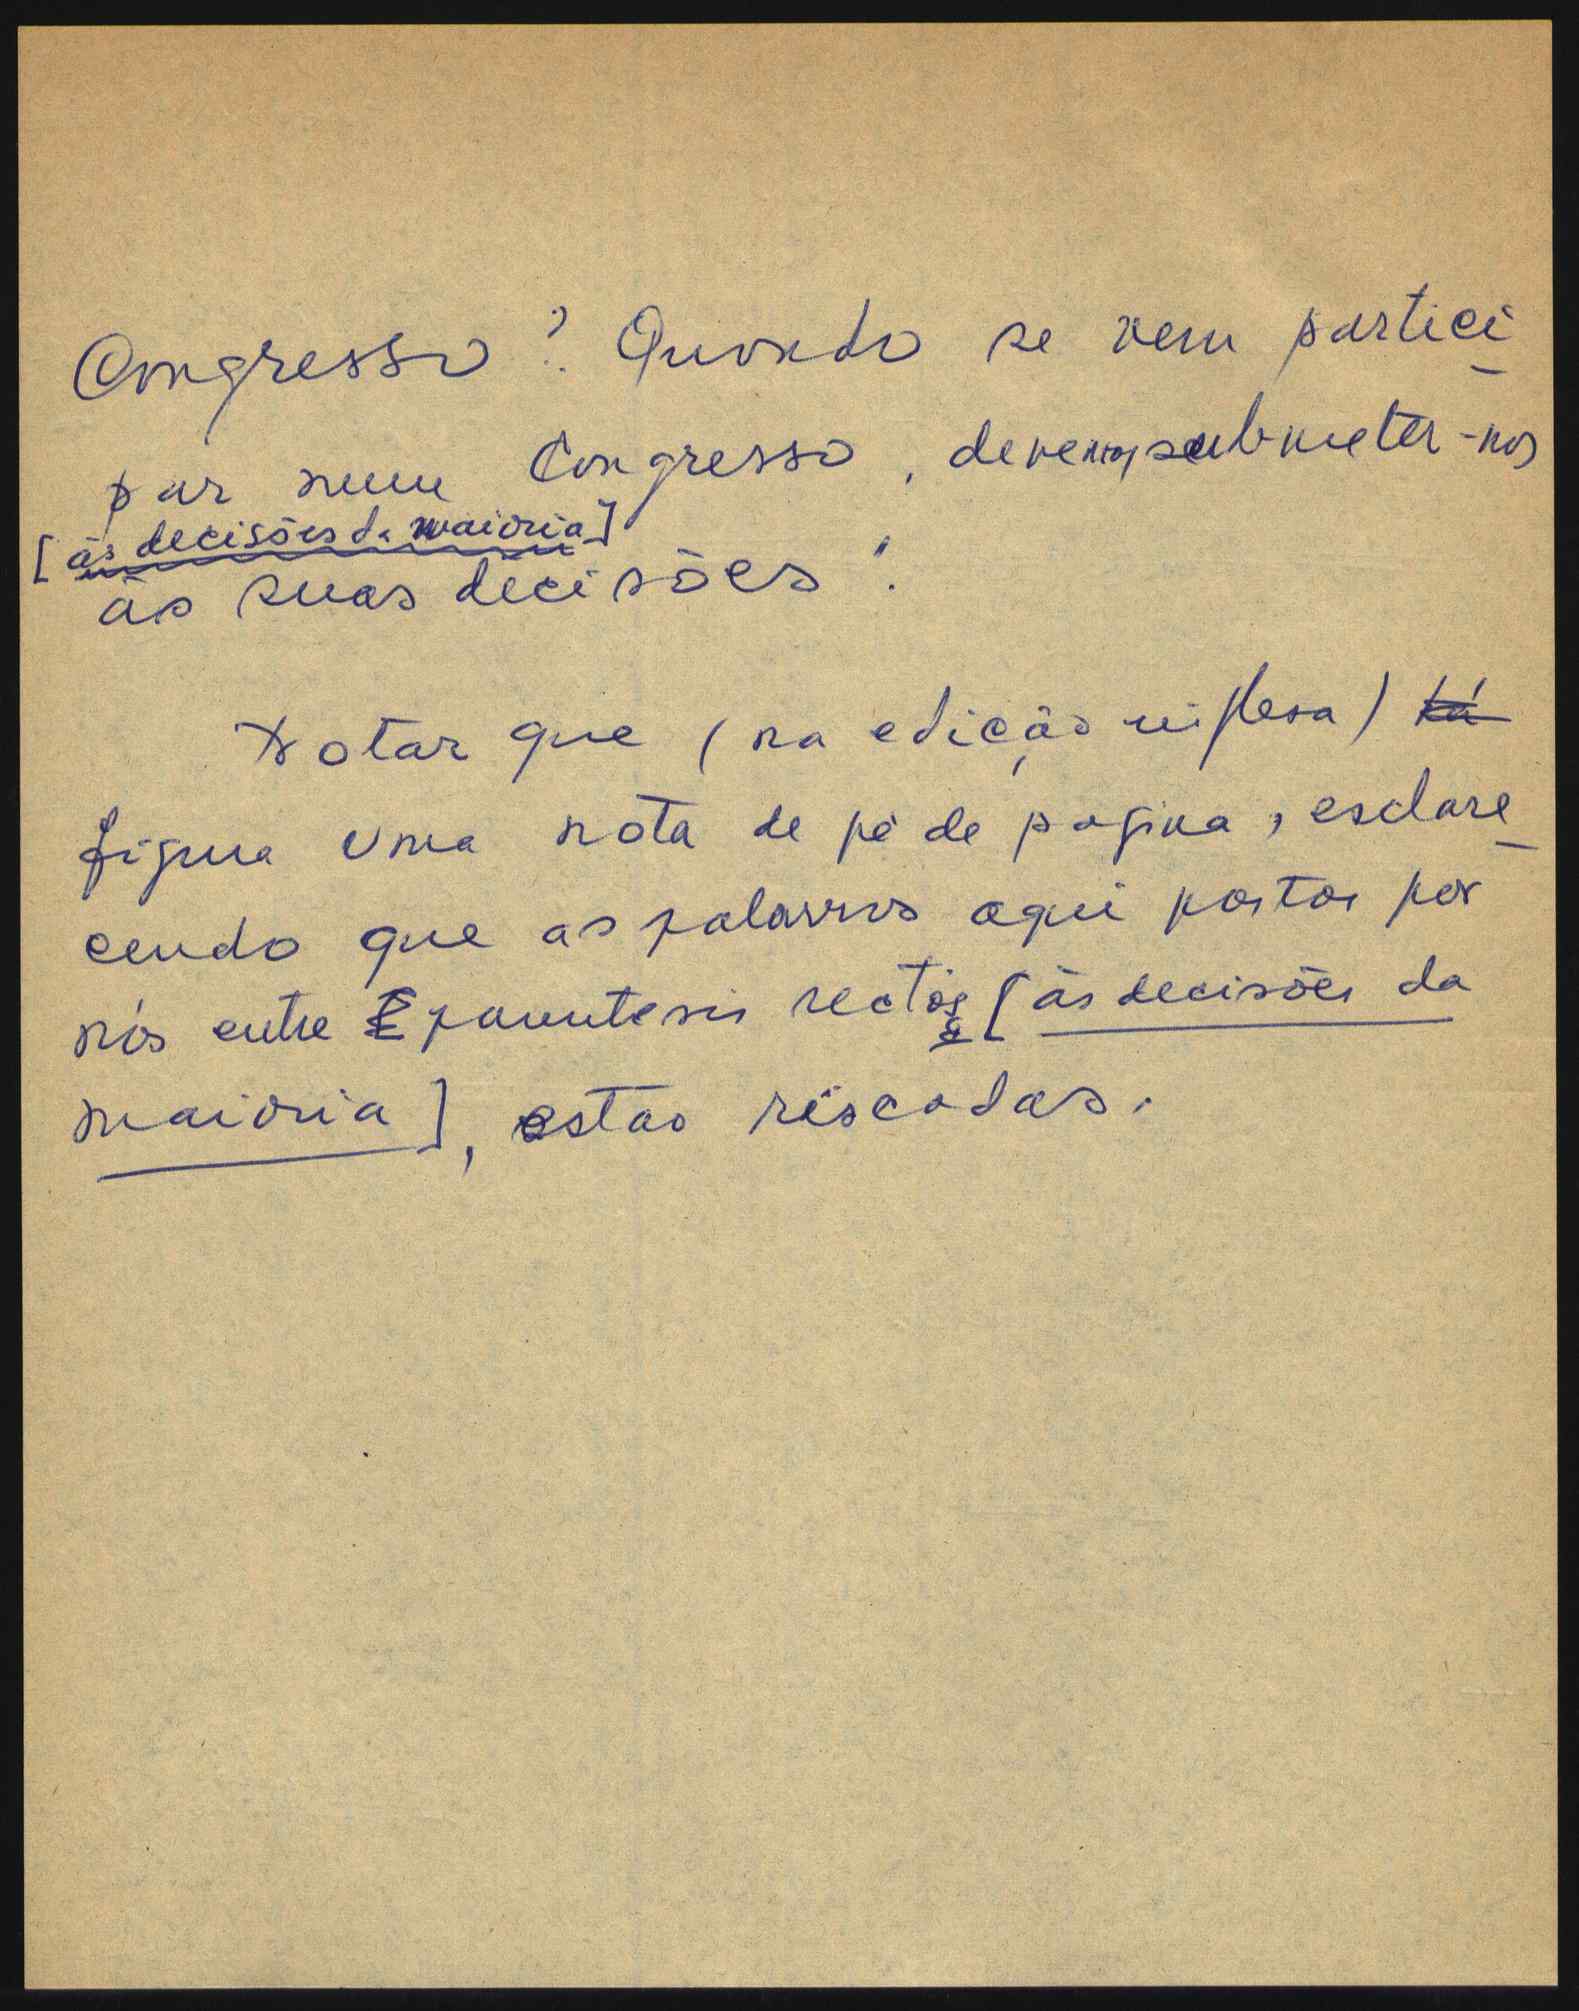 Congresso? Quando se vem partici-
par num Congresso, devemos submeter-nos
[às decisões da maioria]
às suas decisões!
Notar que (na edição inglesa) há
figura uma nota de pé de pagina, esclare-
cendo que as palavras aqui postas por
nós entre parentesis rectos [às decisões da
maioria], estao riscadas.